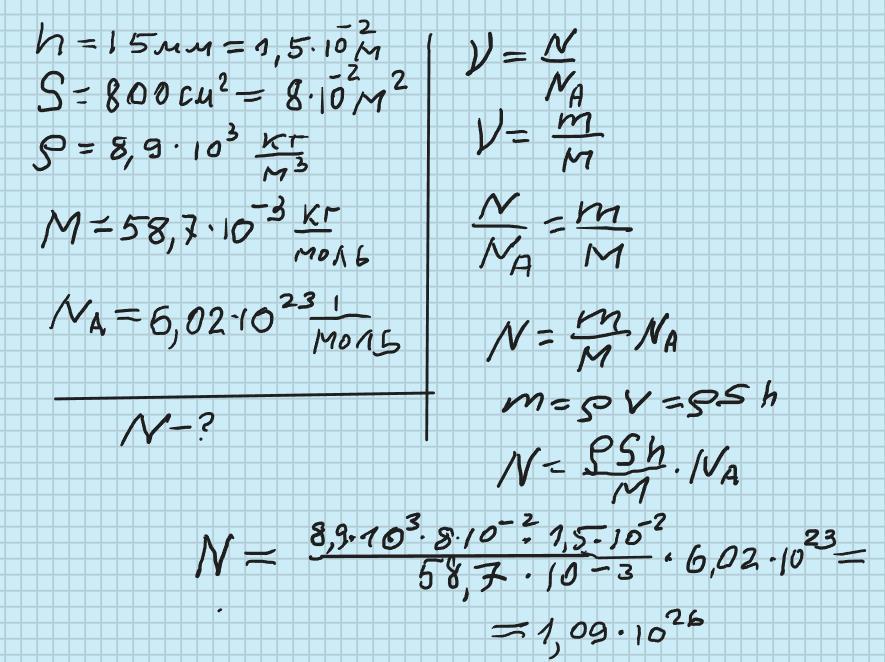 h = 15 мм = 1,5·10⁻² м
S = 800 см² = 8·10⁻² м²
ρ = 8,9·10³ кг/м³
M = 58,7·10⁻³ кг/моль
N_A = 6,02·10²³ 1/моль
N – ?
ν = N/N_A
ν = m/M
N/N_A = m/M
N = m/M N_A
m = ρV = ρSh
N = ρSh/M · N_A
N = 8,9·10³·8·10⁻²·1,5·10⁻²/58,7·10⁻³ · 6,02·10²³ =
= 1,09·10²⁶